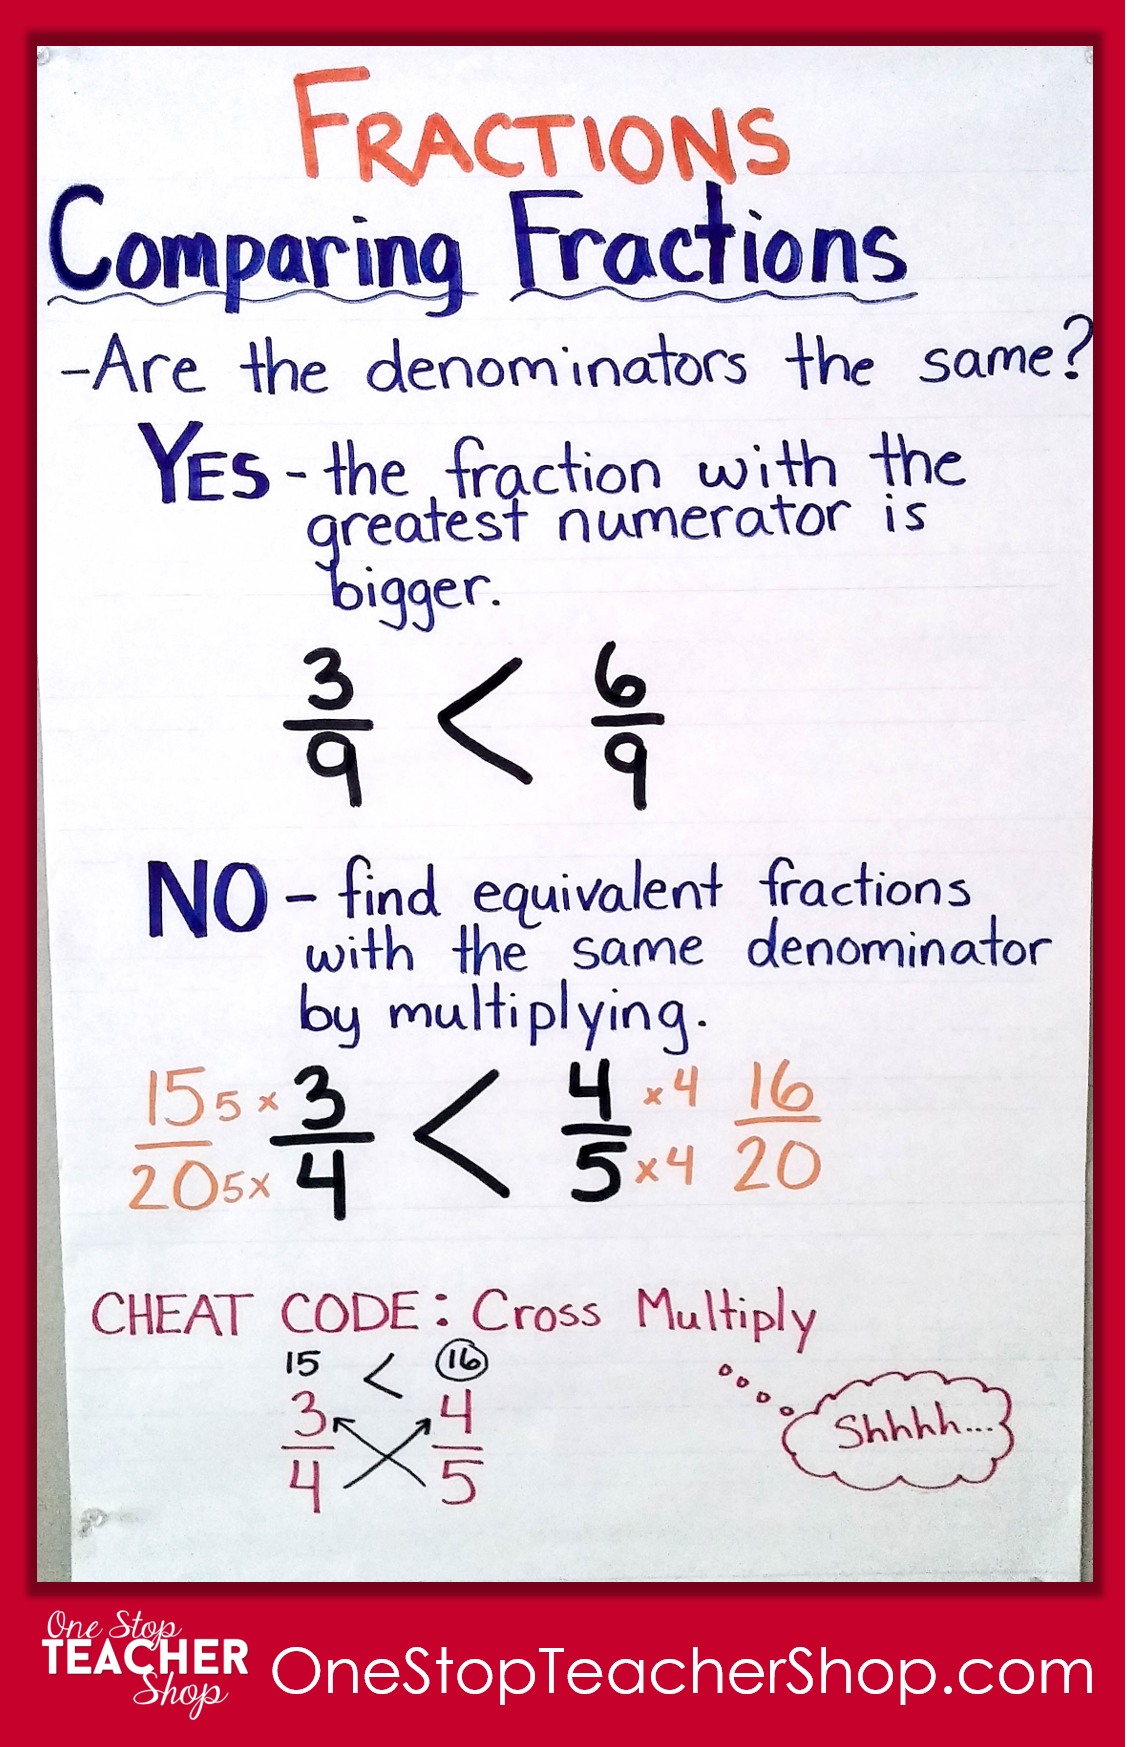 FRACTIONS
Comparing Fractions
-Are the denominators the same?
YES - the fraction with the
greatest numerator is
bigger.
3/9 < 6/9
NO - find equivalent fractions
with the same denominator
by multiplying.
15 5 × 3 < 4 × 4 16
20 5 × 4 5 × 4 20
CHEAT CODE: Cross Multiply
15 < 16
3 4
4 5
Shhhh...
One Stop
TEACHER
Shop
OneStopTeacherShop.com